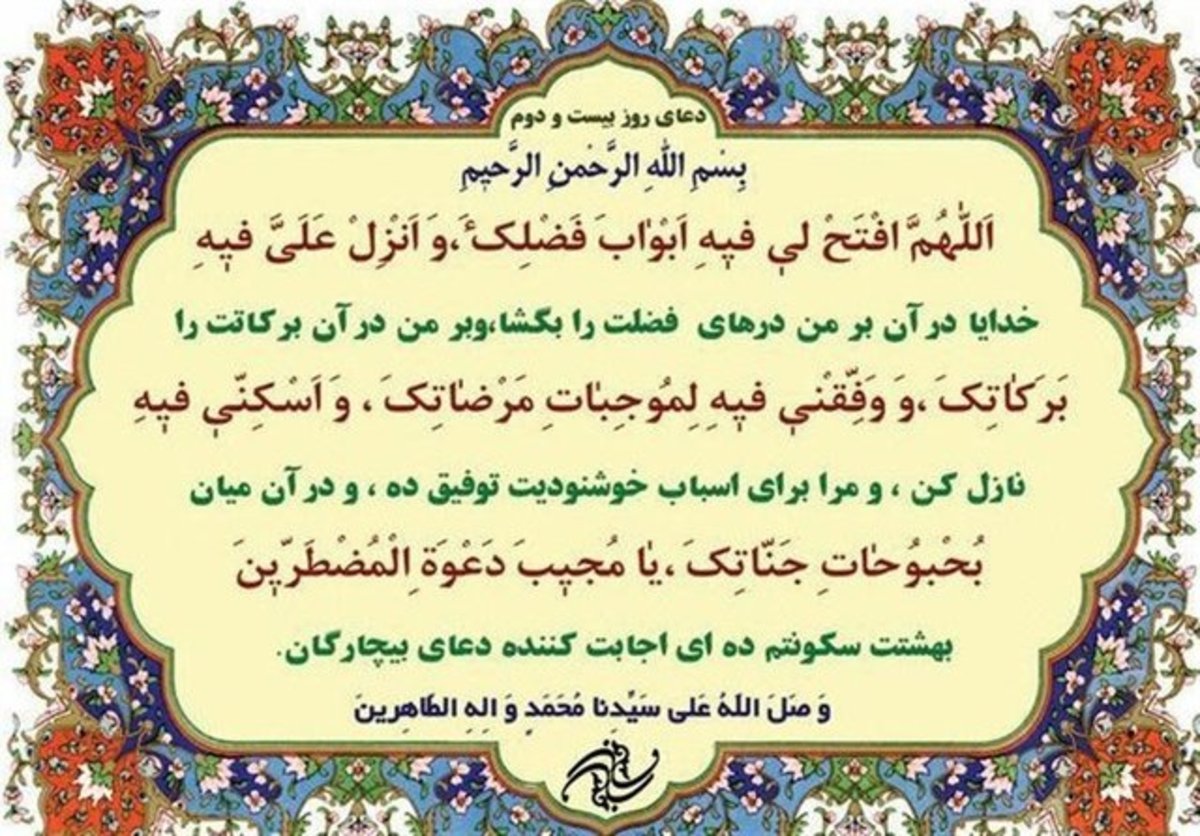 دعای روز بیست و دوم
بِسْمِ اللّٰهِ الرَّحْمنِ الرَّحیمِ
اَللّٰهُمَّ افْتَحْ لی فیهِ اَبْوٰابَ فَضْلِکَ،وَ اَنْزِلْ عَلَیَّ فیهِ
خدایا در آن بر من درهای فضلت را بگشا،وبر من در آن برکاتت را
بَرَکٰاتِکَ ،وَ وَفِّقْنی فیهِ لِمُوجِبٰاتِ مَرْضٰاتِکَ ، وَ اَسْکِنّی فیهِ
نازل کن ، و مرا برای اسباب خوشنودیت توفیق ده ، و در آن میان
بُحْبُوحٰاتِ جَنّاتِکَ ،یٰا مُجیبَ دَعْوَةِ الْمُضْطَرّینَ
بهشتت سکونتم ده ای اجابت کننده دعای بیچارگان.
وَ صَلَ اللهُ عَلی سَیِّدِنا مُحَمَدٍ وَ الِهِ الطّاهِرینَ